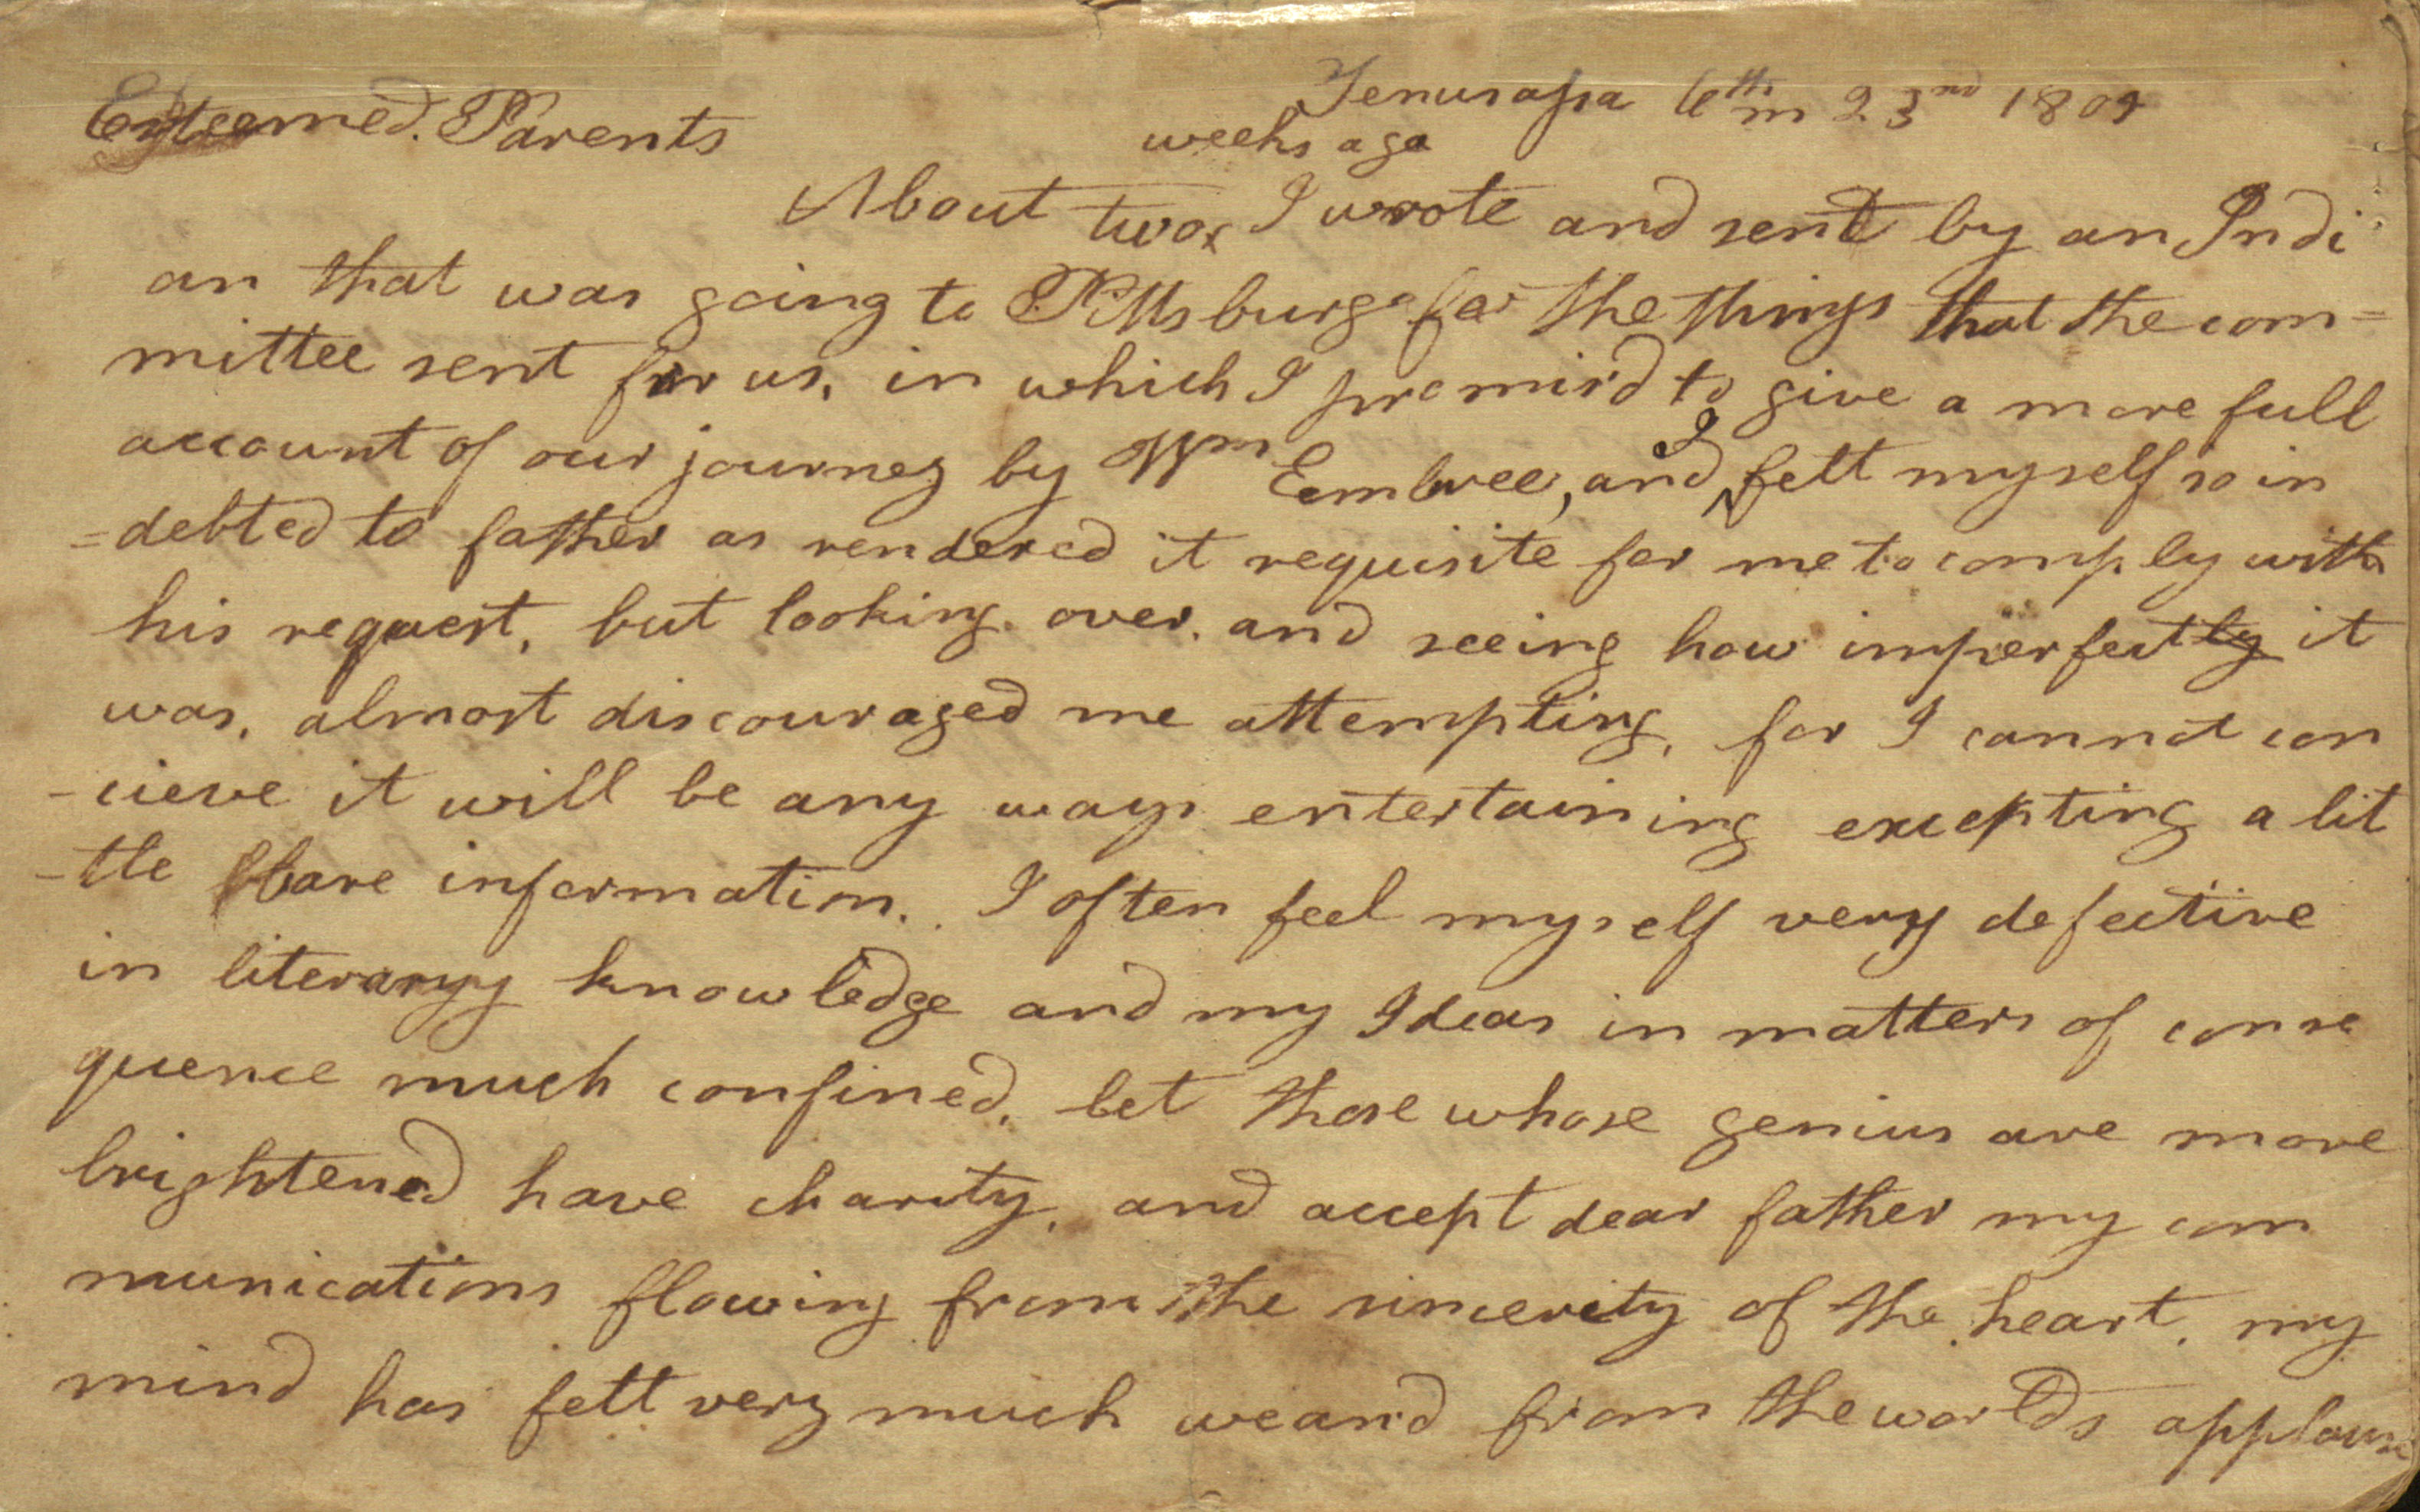 Tenusassa 6th m 23nd 1809
Esteemed Parents
weeks ago
About two I wrote and sent by an Indi
an that was going to Pittsburg for the things that the com=
mittee sent for us, in which I promis'd to give a more full
I
account of our journey by Wm Embree, and felt myself so in
=debted to father as rendered it requisite for me to comply with
his request, but looking over, and seeing how imperfectly it
was, almost discouraged me attempting, for I cannot con
-cieve it will be any ways entertaining excepting a lit
-tle bare information. I often feel myself very defective
in literary knowledge and my Ideas in matters of conse
quence much confined, let those whose genius are more
brightened have charity, and accept dear father my com
munications flowing from the sincerity of the heart, my
mind has felt very much weand from the worlds applause